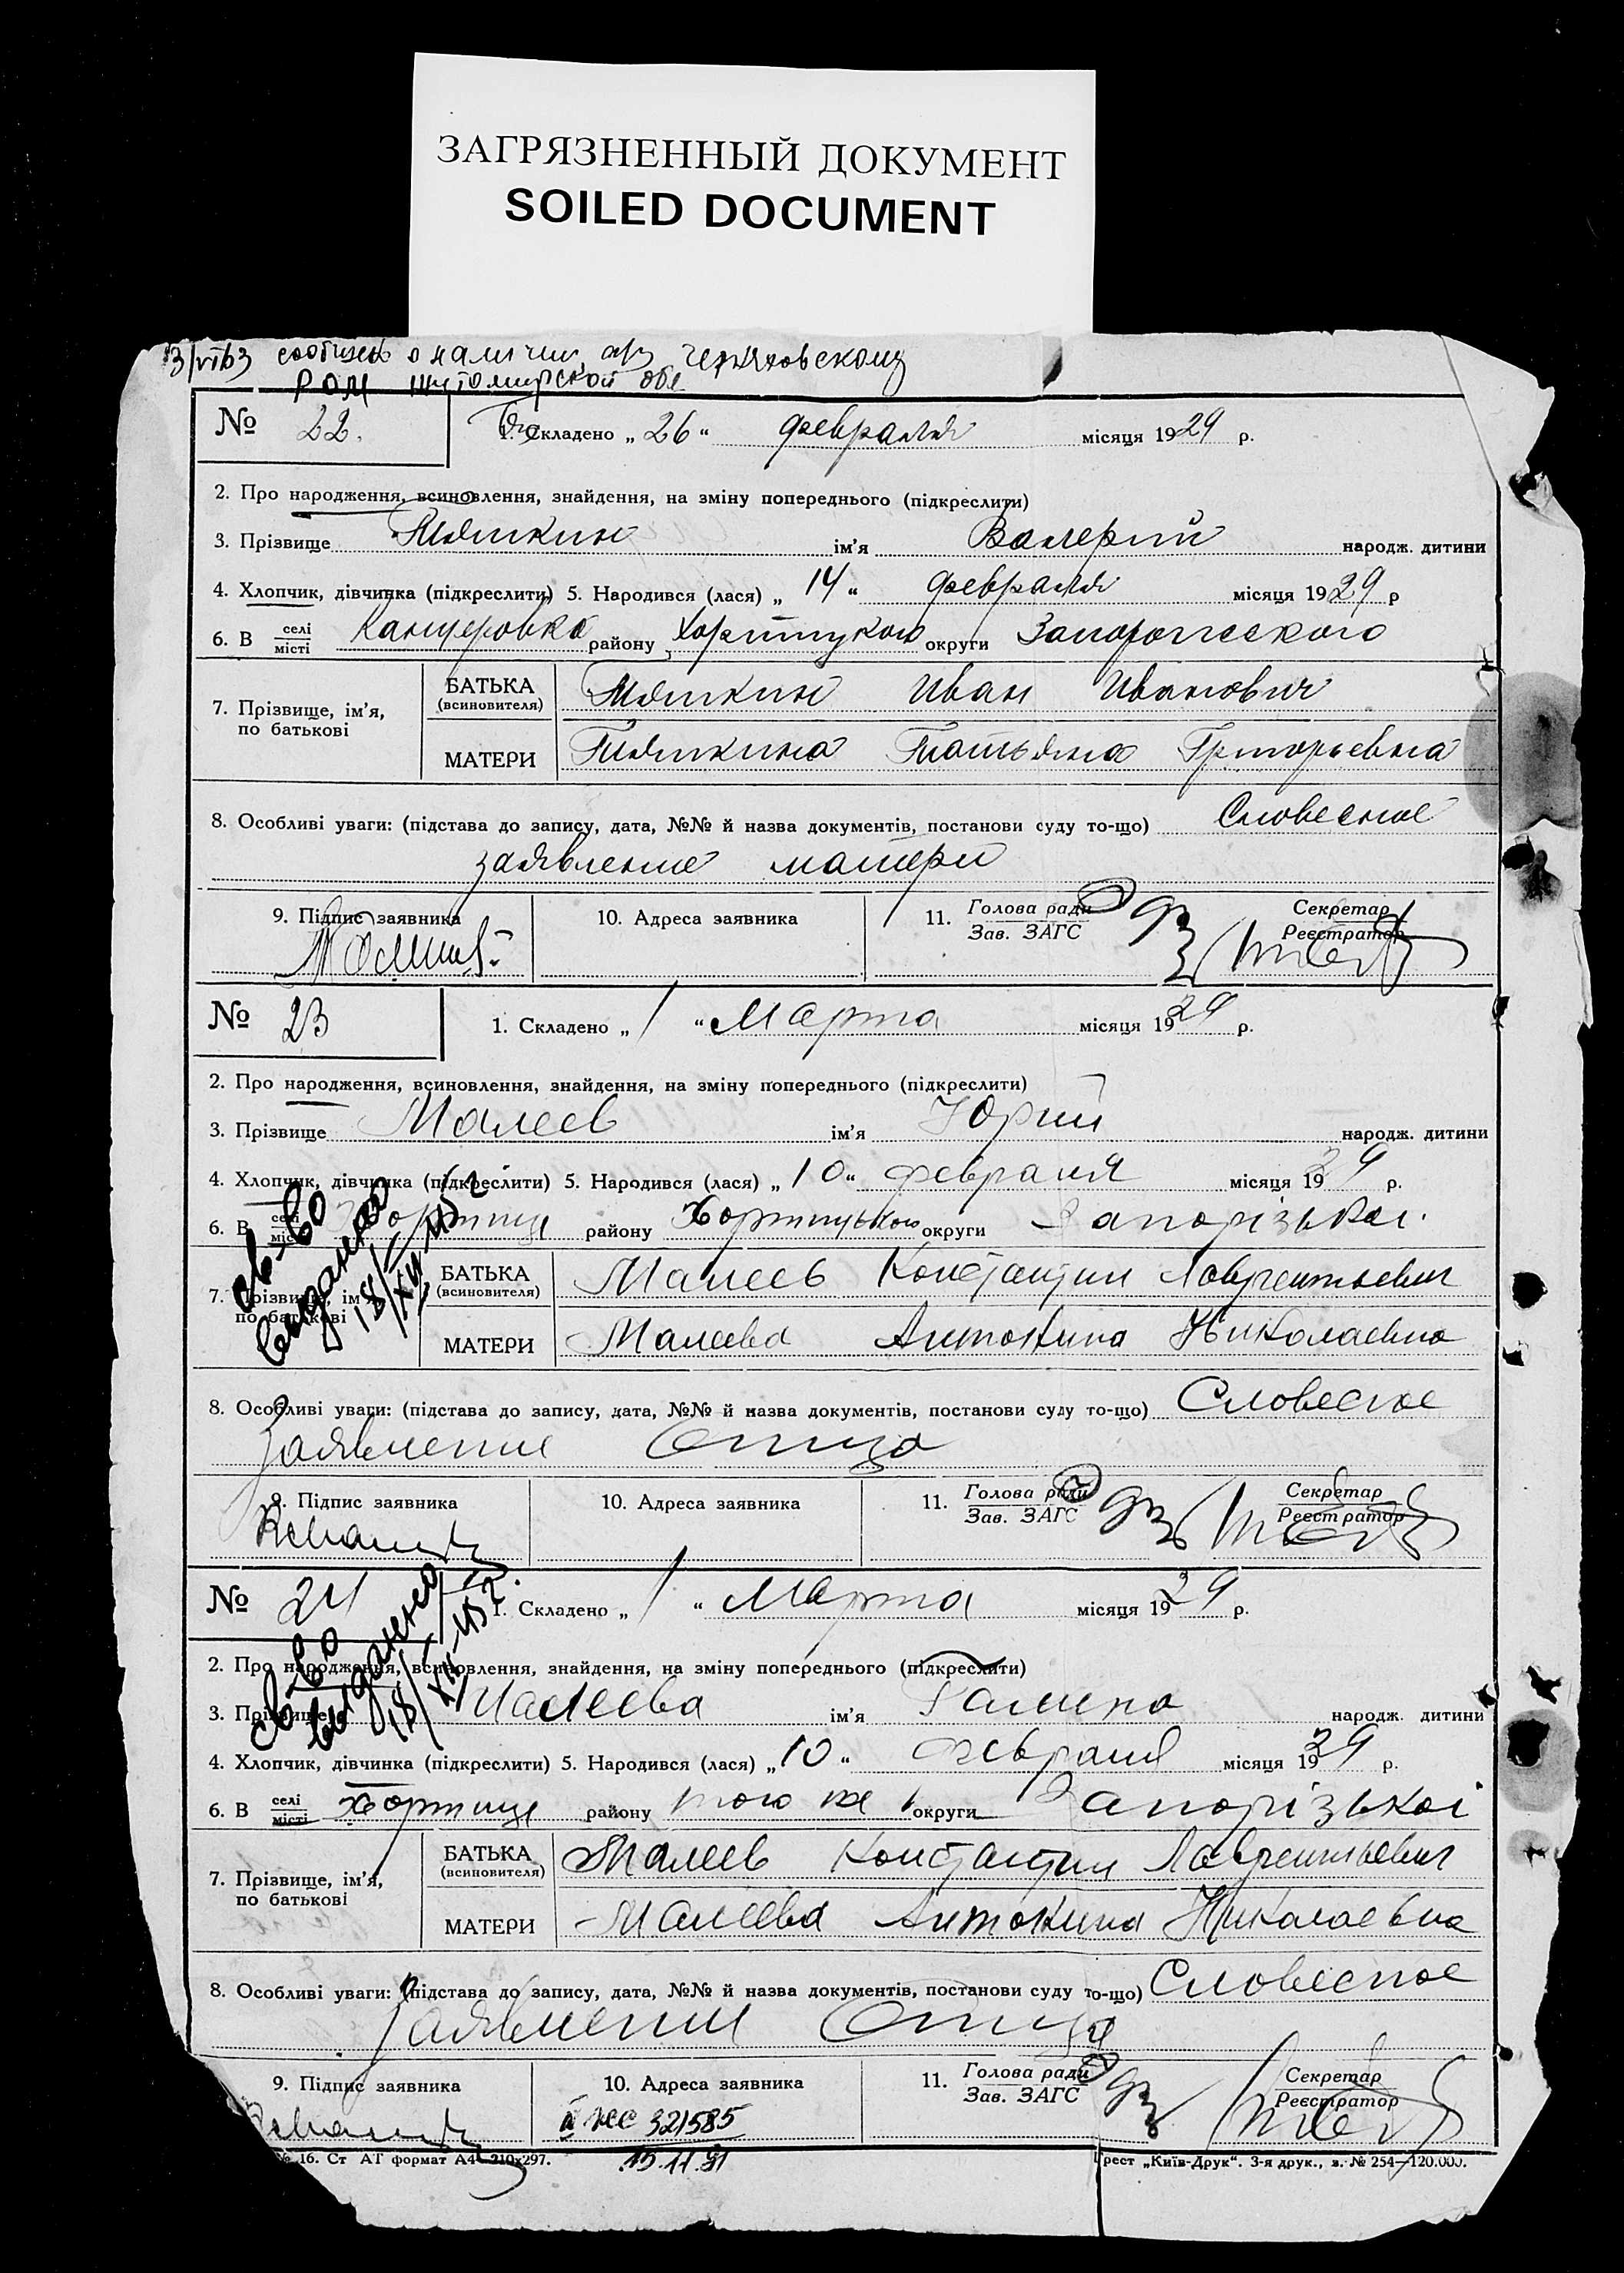 ЗАГРЯЗНЕННЫЙ ДОКУМЕНТ
SOILED DOCUMENT
сообщено о наличии а/з Черняховскому
РОМ Житомирской обл
№ 22. 1. Складено „ 26 “ февраля місяця 1929 р.
2. Про народження, всиновлення, знайдення, на зміну попереднього (підкреслити)
3. Прізвище Тяпкин ім’я Валерий народж. дитини
4. Хлопчик, дівчинка (підкреслити) 5. Народився (лася) „ 14 “ февраля місяця 1929 р
6. В селі місті Канцеровка району округи Запорожского
7. Прізвище, ім’я, по батькові
БАТЬКА (всиновителя) Тяпкин Иван Иванович
МАТЕРИ Тяпкина Татьяна Григорьевна
8. Особливі уваги: (підстава до запису, дата, №№ й назва документів, постанови суду то-що) Словесное
заявление матери
9. Підпис заявника 10. Адреса заявника 11. Голова ради Зав. ЗАГС Секретар Реєстратор
№ 23 1. Складено „ 1 “ Марта місяця 1929 р.
2. Про народження, всиновлення, знайдення, на зміну попереднього (підкреслити)
3. Прізвище Малеев ім’я Юрий народж. дитини
4. Хлопчик, дівчинка (підкреслити) 5. Народився (лася) „ 10 “ февраля місяця 1929 р.
6. В селі місті Хортице району Хортицького округи Запорізької.
св-во
выданно
18/XII 45 г
7. Прізвище, ім’я, по батькові
БАТЬКА (всиновителя) Малеев Константин Лаврентьевич
МАТЕРИ Малеева Антонина Николаевна
8. Особливі уваги: (підстава до запису, дата, №№ й назва документів, постанови суду то-що) Словесное
заявление Отца
9. Підпис заявника 10. Адреса заявника 11. Голова ради Зав. ЗАГС Секретар Реєстратор
№ 24 1. Складено „ 1 “ Марта місяця 1929 р.
св-во
выданно
18/XII-45 г.
2. Про народження, всиновлення, знайдення, на зміну попереднього (підкреслити)
3. Прізвище Малеева ім’я Галина народж. дитини
4. Хлопчик, дівчинка (підкреслити) 5. Народився (лася) „ 10 “ февраля місяця 1929 р.
6. В селі місті Хортице району того же округи Запорізької
7. Прізвище, ім’я, по батькові
БАТЬКА (всиновителя) Малеев Константин Лаврентьевич
МАТЕРИ Малеева Антонина Николаевна
8. Особливі уваги: (підстава до запису, дата, №№ й назва документів, постанови суду то-що) Словесное
заявление Отца
9. Підпис заявника 10. Адреса заявника 11. Голова ради Зав. ЗАГС Секретар Реєстратор
321585
15.11.91
№ 16. Ст АТ формат А4 210х297. Трест „Київ-Друк“. 3-я друк., з. № 254—120.000.